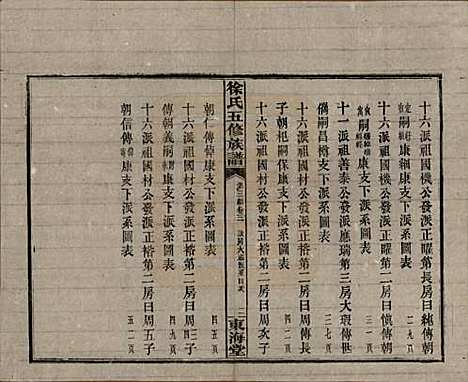 十六派祖國機公發派正曜第長房日純傳朝
康細康支下派系圖表
二九頁
十六派祖國機公發派正曜第二房日慎傳朝
嗣康支下派系圖表
三一頁
十一派祖善泰公發派應瑞第三房大瑕傳世
偽嗣昌樽支下派系圖表
三七頁
十六派祖國材公發派正榕第二房日周傳長
子朝杞嗣保康支下派系圖表
徐氏五修族譜
東海堂
十六派祖國材公發派正榕第二房日周次子
朝仁傳康支下派系圖表
四五頁
十六派祖國材公發派正榕第二房日周三子
傳朝義嗣康支下派系圖表
四九頁
十六派祖國材公發派正榕第二房日周五子
朝信傳康支下派系圖表
五二頁